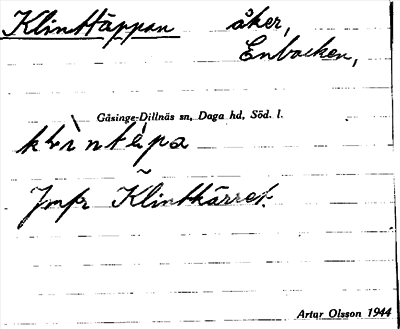 Klinttäppan åker,
Enbacken,
Gåsinge-Dillnäs sn, Daga hd, Söd. l.
Jmfr Klintkärret.
Artur Olsson 1944